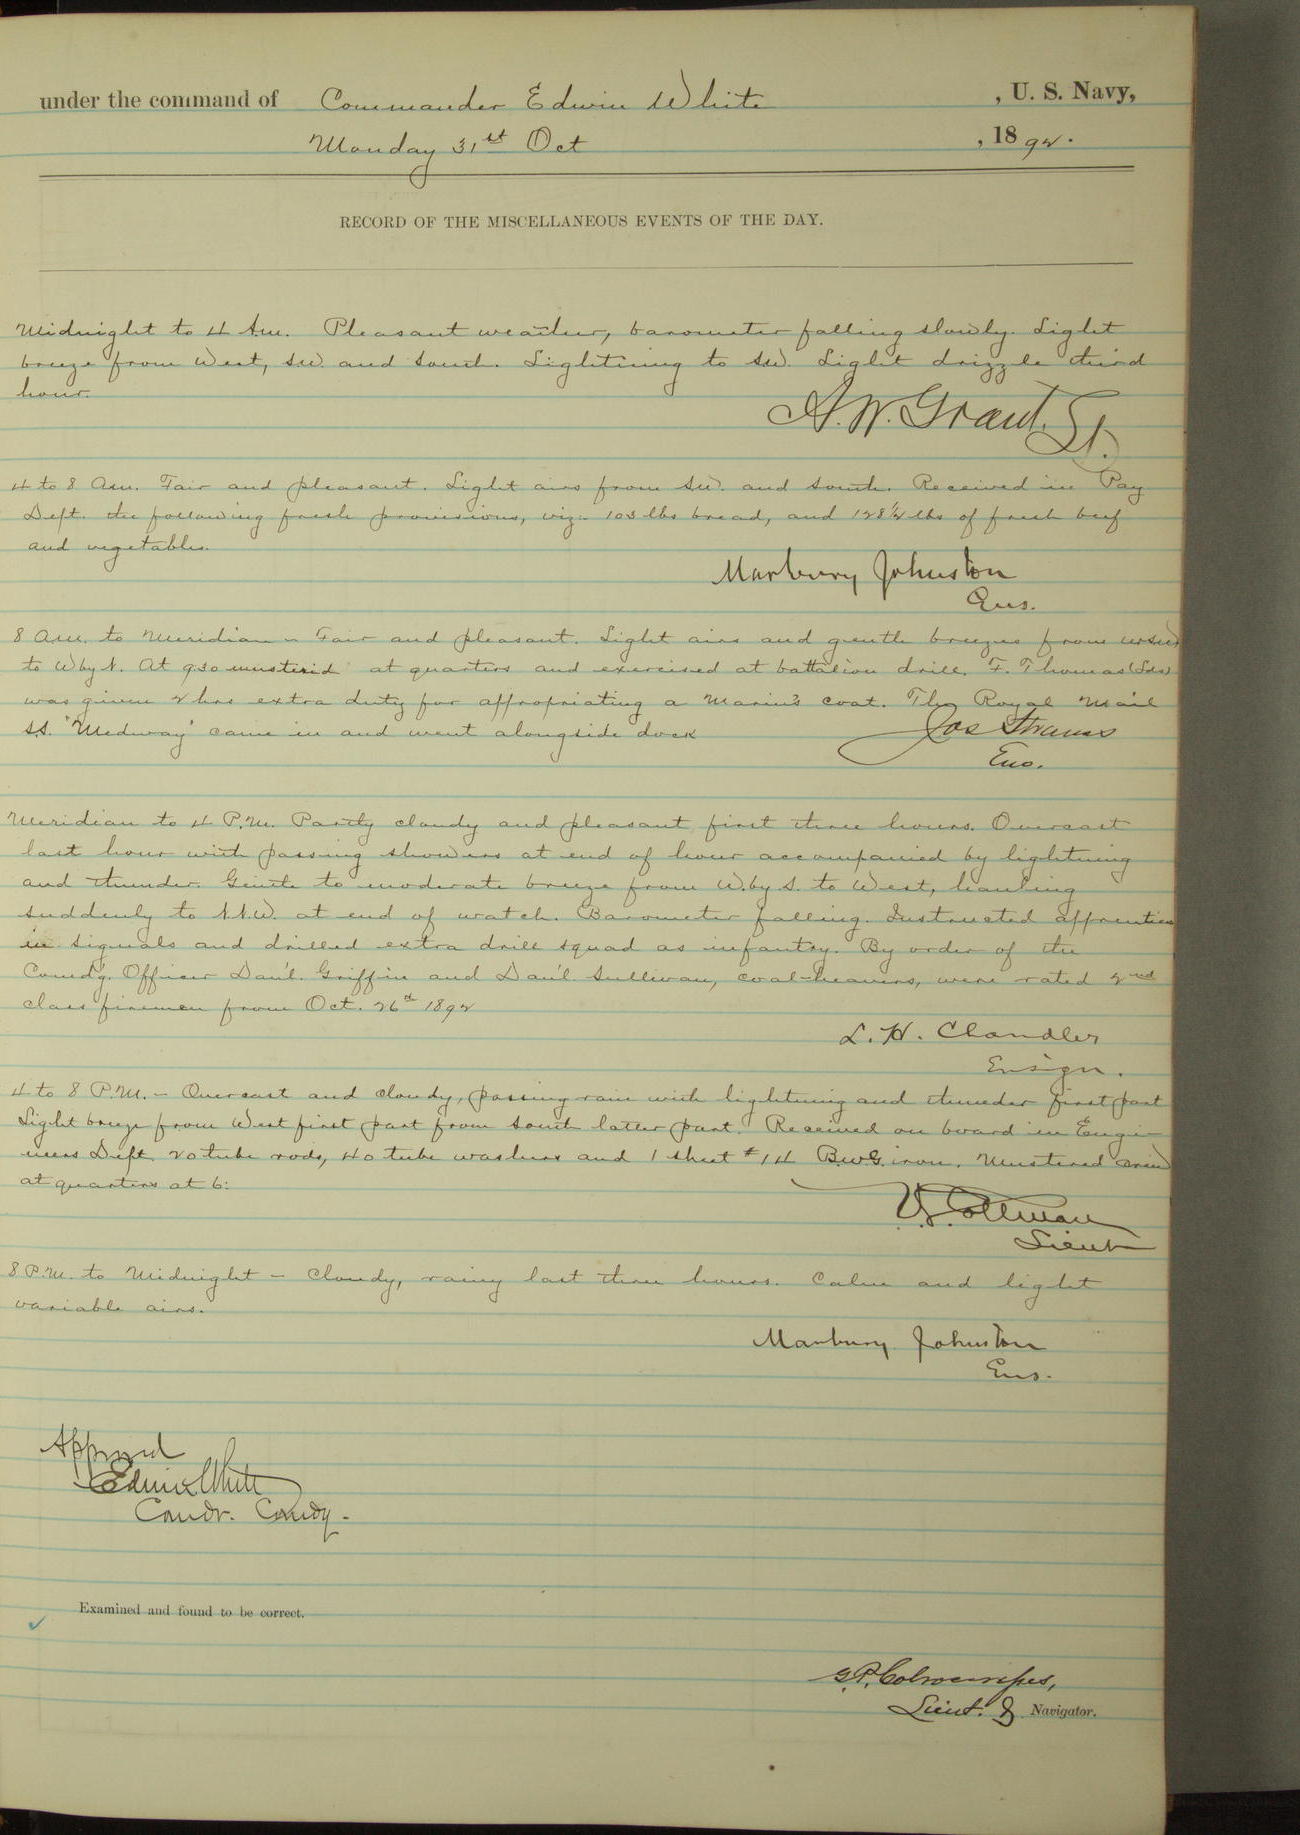 under the command of Commander Edwin White , U. S. Navy,
Monday 31st Oct , 1892.
RECORD OF THE MISCELLANEOUS EVENTS OF THE DAY.
Midnight to 4 Am. Pleasant weather, barometer falling slowly. Light
breeze from West, SW. and South. Lightning to SW. Light drizzle third
hour.
A. W. Grant. Lt.
4 to 8 Am. Fair and pleasant. Light airs from SW. and South. Received in Pay
Deft. the following fresh provisions, viz:- 103 lbs bread, and 128 1/2 lbs of fresh beef
and vegetables.
Marbury Johnston
Ens.
8 A.M. to Meridian - Fair and pleasant. Light airs and gentle breezes from WSW
to W by N. At 9.30 mustered at quarters and exercised at battalion drill. F. Thomas (Lds)
was given 2 hrs extra duty for appropriating a Marine's coat. The Royal Mail
S.S. "Medway" came in and went alongside dock
Jos Strauss
Ens.
Meridian to 4 P.M. Partly cloudy and pleasant first three hours. Overcast
last hour with passing showers at end of hour accompanied by lightning
and thunder. Gentle to moderate breeze from W. by S. to West, hauling
suddenly to N.N.W. at end of watch. Barometer falling. Instructed apprentices
in signals and drilled extra drill squad as infantry. By order of the
Comd'g. Officer Dan'l. Griffin and Dan'l Sullivan, coal-heavers, were rated 2nd
class firemen from Oct. 26th 1892
L. H. Chandler
Ensign.
4 to 8 P.M. - Overcast and cloudy, passing rain with lightning and thunder first part
Light breeze from West first part from South latter part. Received on board in Engi-
neers Deft. 20 tube rods, 40 tube washers and 1 sheet #14 B.W.G. iron. Mustered crew
at quarters at 6:
Lieut
8 P.M. to Midnight - Cloudy, rainy last three hours. Calm and light
variable airs.
Marbury Johnston
Ens.
Approved
Edwin White
Comdr. Comdg.
Examined and found to be correct.
G. P. Colvocoresses,
Lieut. & Navigator.